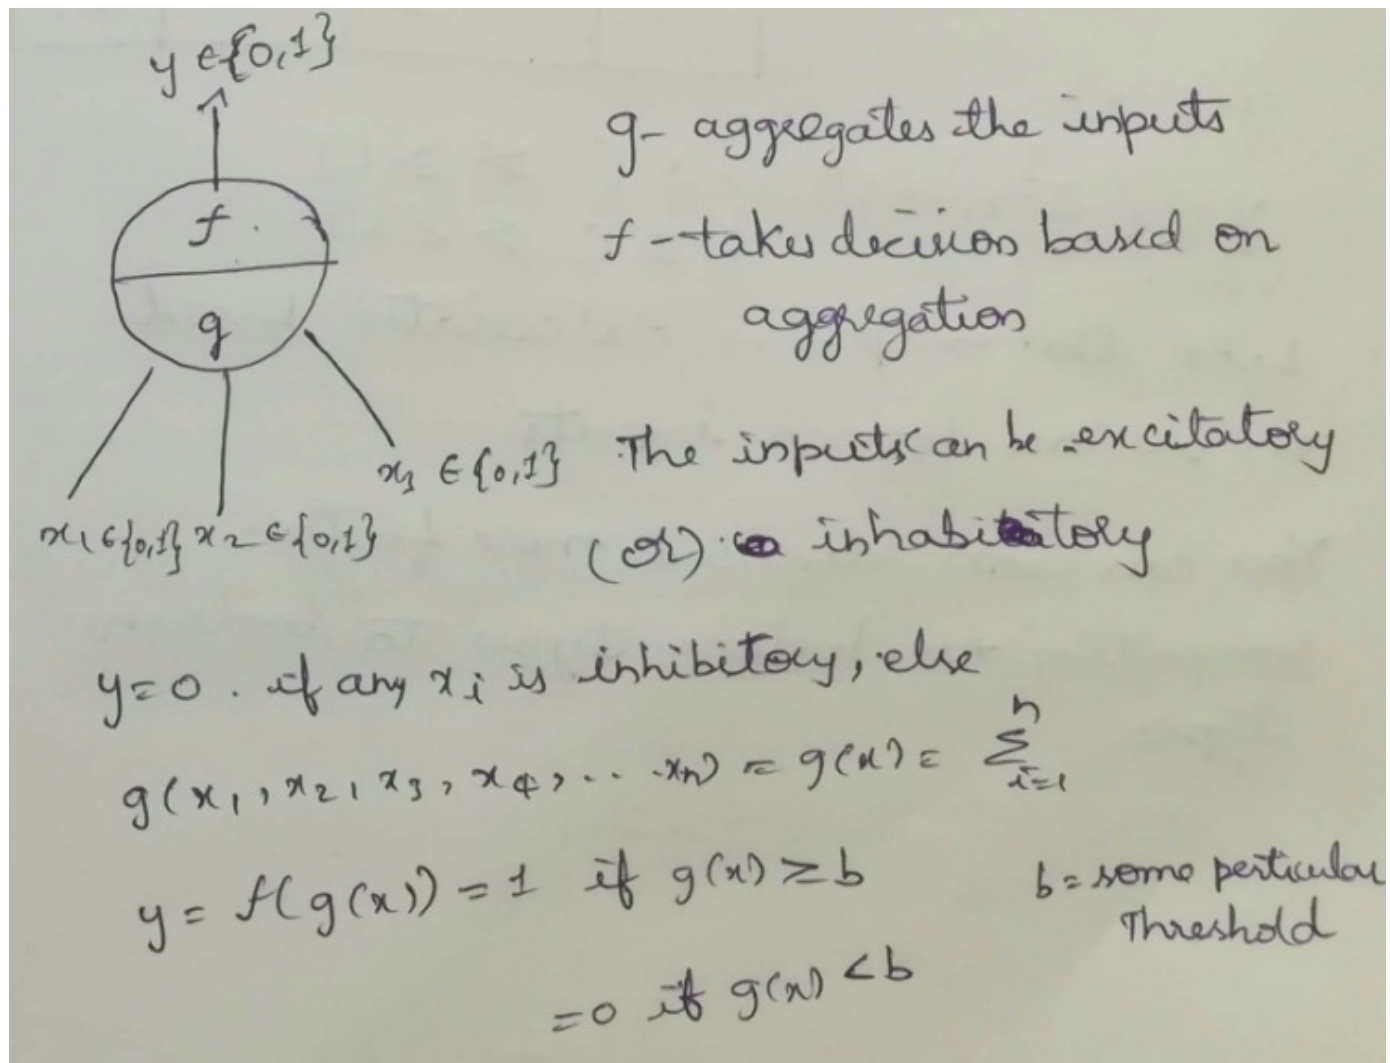 y ∈ {0,1}
f
g
x₁ ∈ {0,1} x₂ ∈ {0,1}
x₃ ∈ {0,1}
g- aggregates the inputs
f - takes decision based on
aggregation
The inputs can be excitatory
(or) inhabitatory
y=0. if any xᵢ is inhibitory, else
g(x₁, x₂, x₃, x₄, .. .xₙ) = g(x) = Σ i=1 n
y = f(g(x)) = 1 if g(x) ≥ b
=0 if g(x) < b
b = some perticular
Threshold